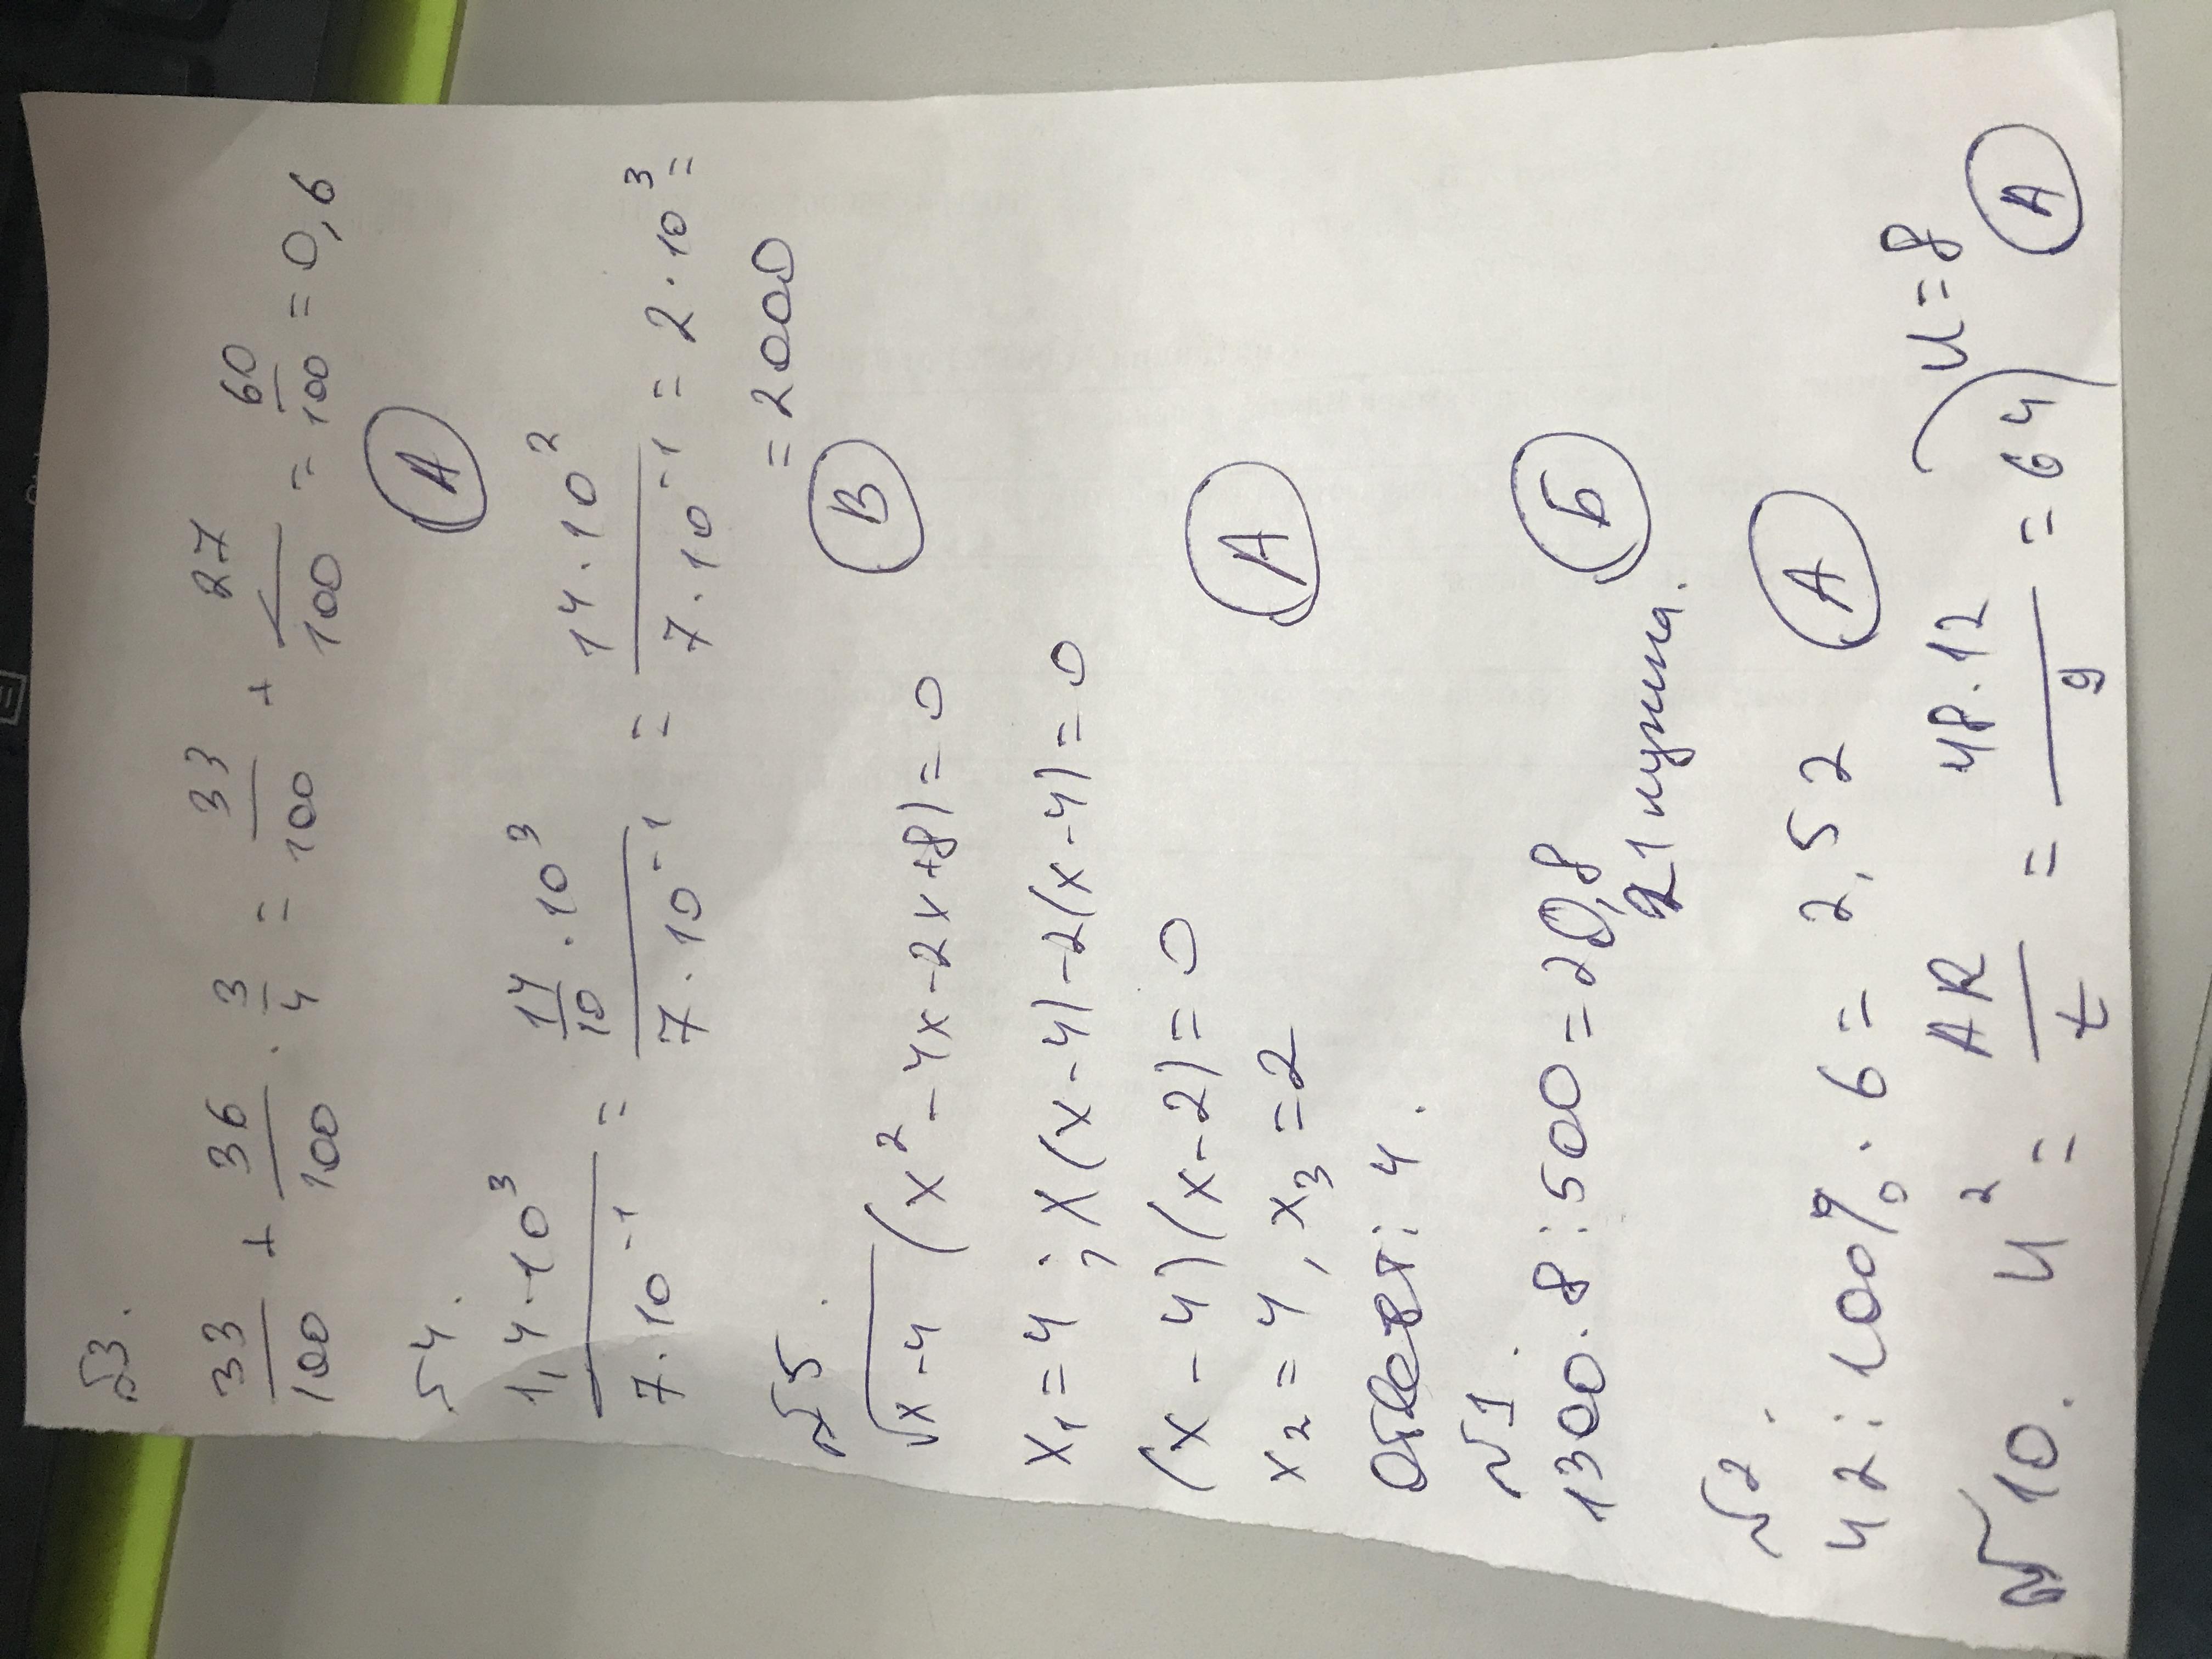 №3.
33/100 + 36/100 · 3/4 = 33/100 + 27/100 = 60/100 = 0,6
А
№4.
1,4·10³/7·10⁻¹ = 14/10·10³/7·10⁻¹ = 14·10²/7·10⁻¹ = 2·10³ =
= 2000
В
№5.
√x-4 (x²-4x-2x+8)=0
x₁=4; x(x-4)-2(x-4)=0
(x-4)(x-2)=0
x₂=4, x₃=2
А
Ответ: 4.
№1.
1300·8:500=20,8
21 пузина.
Б
№2.
42:100%·6=2,52
А
№10. U² = AR/t = 48·12/9 = 64) U=8
А